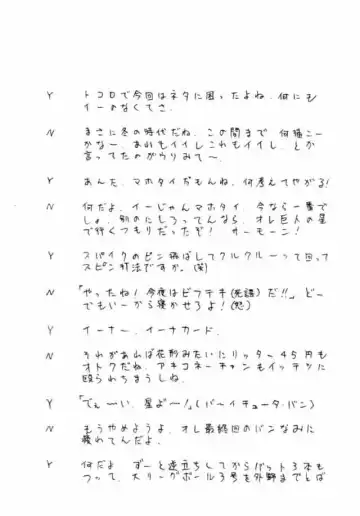 Y トコロで今回はネタに困ったよね、何にも
イーのなくてさ。
N まさに冬の時代だね、この間まで何描こー
かなー、あれもイイしこれもイイし、とか
言ってたのがウソみて〜
Y あんた、マホタイだもんね、何考えてやがる!
N 何だよ、イーじゃんマホタイ、今なら一番で
しょ、別のにしろってんなら、オレ巨人の星
で行くつもりだったぞ! オーモーン!
Y スパイクのピン飛ばしてクルクルーって回って
スピン打法ですか。(笑)
N 「やったね!今夜はビフテキ(死語)だ!!」どー
でもいーから寝かせろよ!(怒)
Y イーナー、イーナカード。
N それがあれば花形みたいにリッター45円も
オトクだね、アキコネーチャンもイッテツに
殴られちまうしね。
Y 「でぇ〜い、星よ〜!」(バーイチュータ・バン)
N もうやめようよ、オレ最終回のバンなみに
疲れてんだよ。
Y 何だよ ずーと逆立ちしてからバット3本も
つって、大リーグボール3号を外野までとば